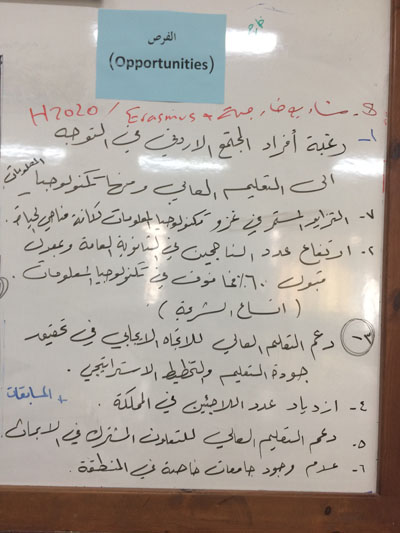 الفرص
(Opportunities)
8- مشاريع خارجية Erasmus + / H2020
١- رغبة أفراد المجتمع الاردني في التوجه
الى التعليم العالي ومنها تكنولوجيا المعلومات
٧- التزايد المستمر في غزو تكنولوجيا المعلومات لكافة مناحي الحياة.
٢- ارتفاع عدد الناجحين في الثانوية العامة وبمعدل
قبول ٦٠٪ فما فوق في تكنولوجيا المعلومات.
(اتساع الشريحة)
٣- دعم التعليم العالي للاتجاه الايجابي في تحقيق
جودة التعليم والتخطيط الاستراتيجي.
٤- ازدياد عدد اللاجئين في المملكة.
+ المسابقات
٥- دعم التعليم العالي للتعاون المشترك في الابحاث.
٦- عدم وجود جامعات خاصة في المنطقة.